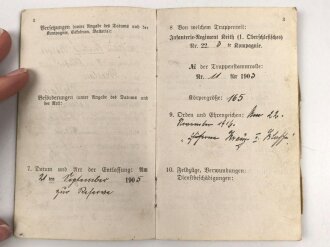 2
Versetzungen (unter Angabe des Datums und der
Kompagnie, Eskadron, Batterie):
Beförderungen (unter Angabe des Datums und
der Art):
7. Datum und Art der Entlassung: Am
21 ten September 1905
zur Reserve
3
8. Von welchem Truppenteil:
Infanterie-Regiment Keith (1. Oberschlesisches)
Nr. 22. 8 te Kompagnie.
№ der Truppenstammrolle:
Nr. 11 für 1903
Körpergröße: 165
9. Orden und Ehrenzeichen: Am 22.
November 1916.
Eiserne Kreuz II Klasse
10. Feldzüge, Verwundungen,
Dienstbeschädigungen: